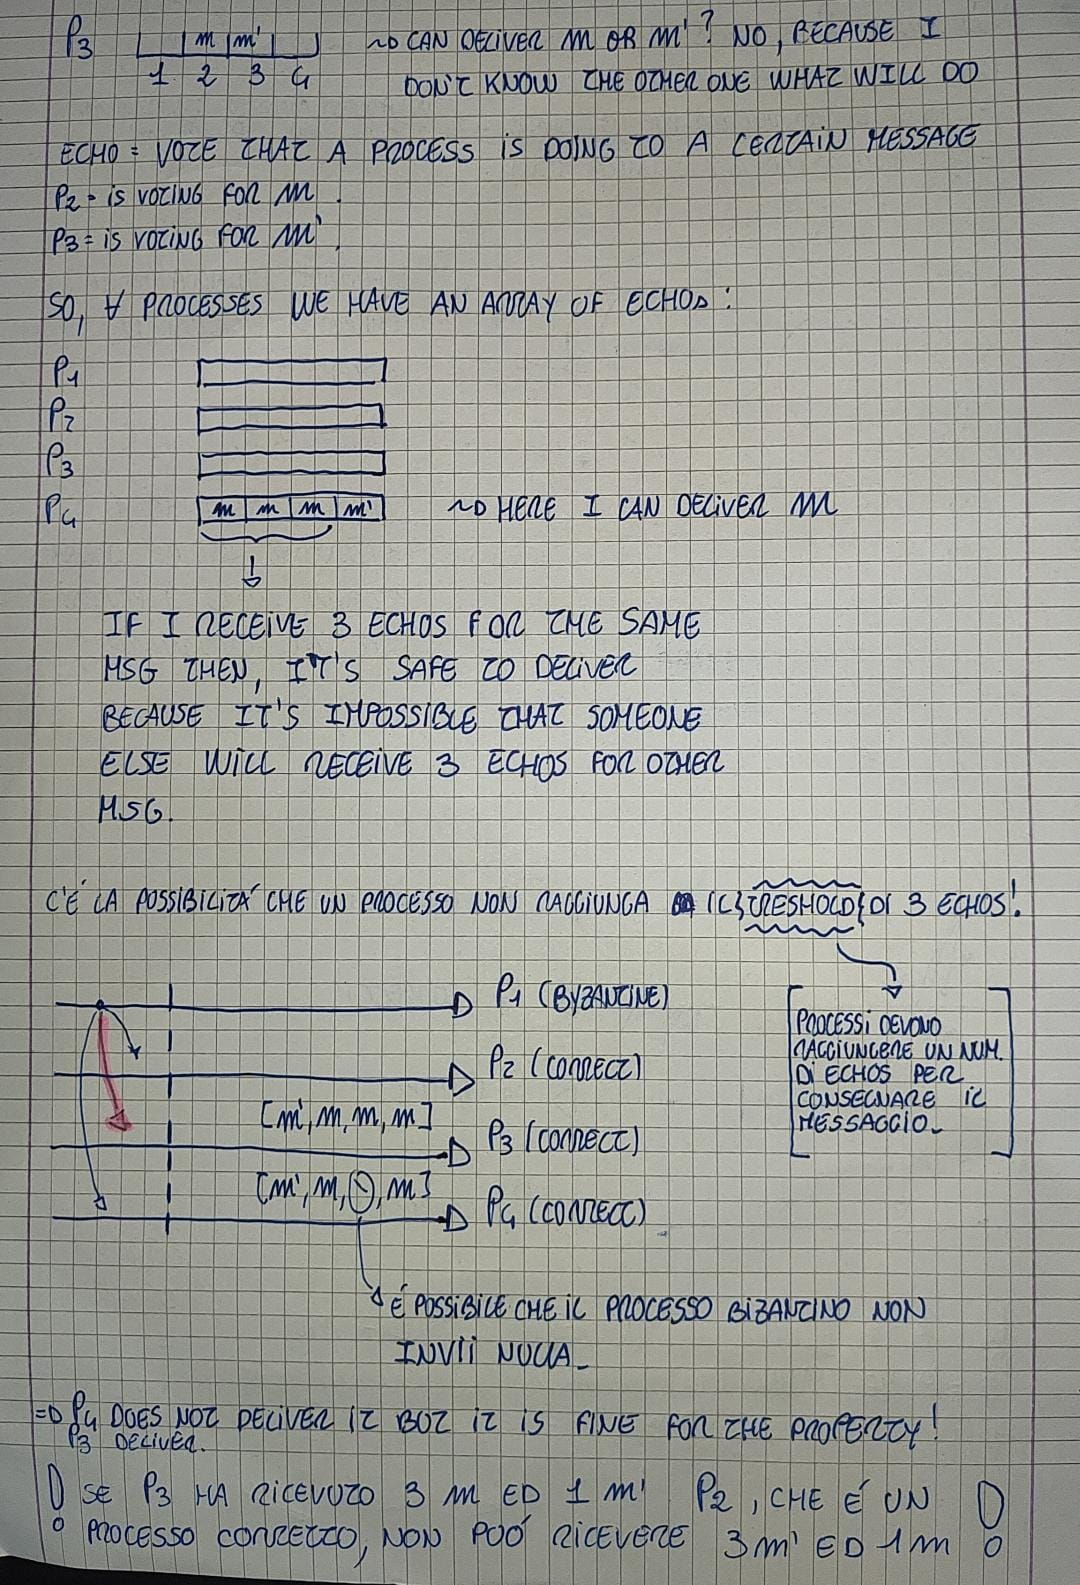 P3 m m' ~D CAN DELIVER m OR m'? NO, BECAUSE I
1 2 3 4 DON'T KNOW THE OTHER ONE WHAT WILL DO
ECHO = VOTE THAT A PROCESS iS DOING TO A CERTAIN MESSAGE
P2 = iS VOTING FOR m.
P3 = iS VOTING FOR m'.
SO, ∀ PROCESSES WE HAVE AN ARRAY OF ECHOS:
P1
P2
P3
P4 m m m m' ~D HERE I CAN DELIVER m
IF I RECEIVE 3 ECHOS FOR THE SAME
MSG THEN, IT'S SAFE TO DELIVER
BECAUSE IT'S IMPOSSIBLE THAT SOMEONE
ELSE WILL RECEIVE 3 ECHOS FOR OTHER
MSG.
C'É LA POSSIBILITÁ CHE UN PROCESSO NON RAGGIUNGA IL TRESHOLD DI 3 ECHOS!
P1 (BYZANTINE)
PROCESSi DEVONO
RAGGIUNGERE UN NUM.
Di ECHOS PER
CONSEGNARE iL
MESSAGGIO.
P2 (CORRECT)
[m', m, m, m]
P3 (CORRECT)
[m', m, , m]
P4 (CORRECT)
É POSSIBILE CHE iL PROCESSO BiZANTINO NON
INVIi NULLA.
=D P4 DOES NOT DELIVER IT BUT IT IS FINE FOR THE PROPERTY!
P3 DELIVER.
! SE P3 HA RICEVUTO 3 m ED 1 m' P2, CHE É UN !
PROCESSO CORRETTO, NON PUÓ RICEVERE 3 m' ED 1 m